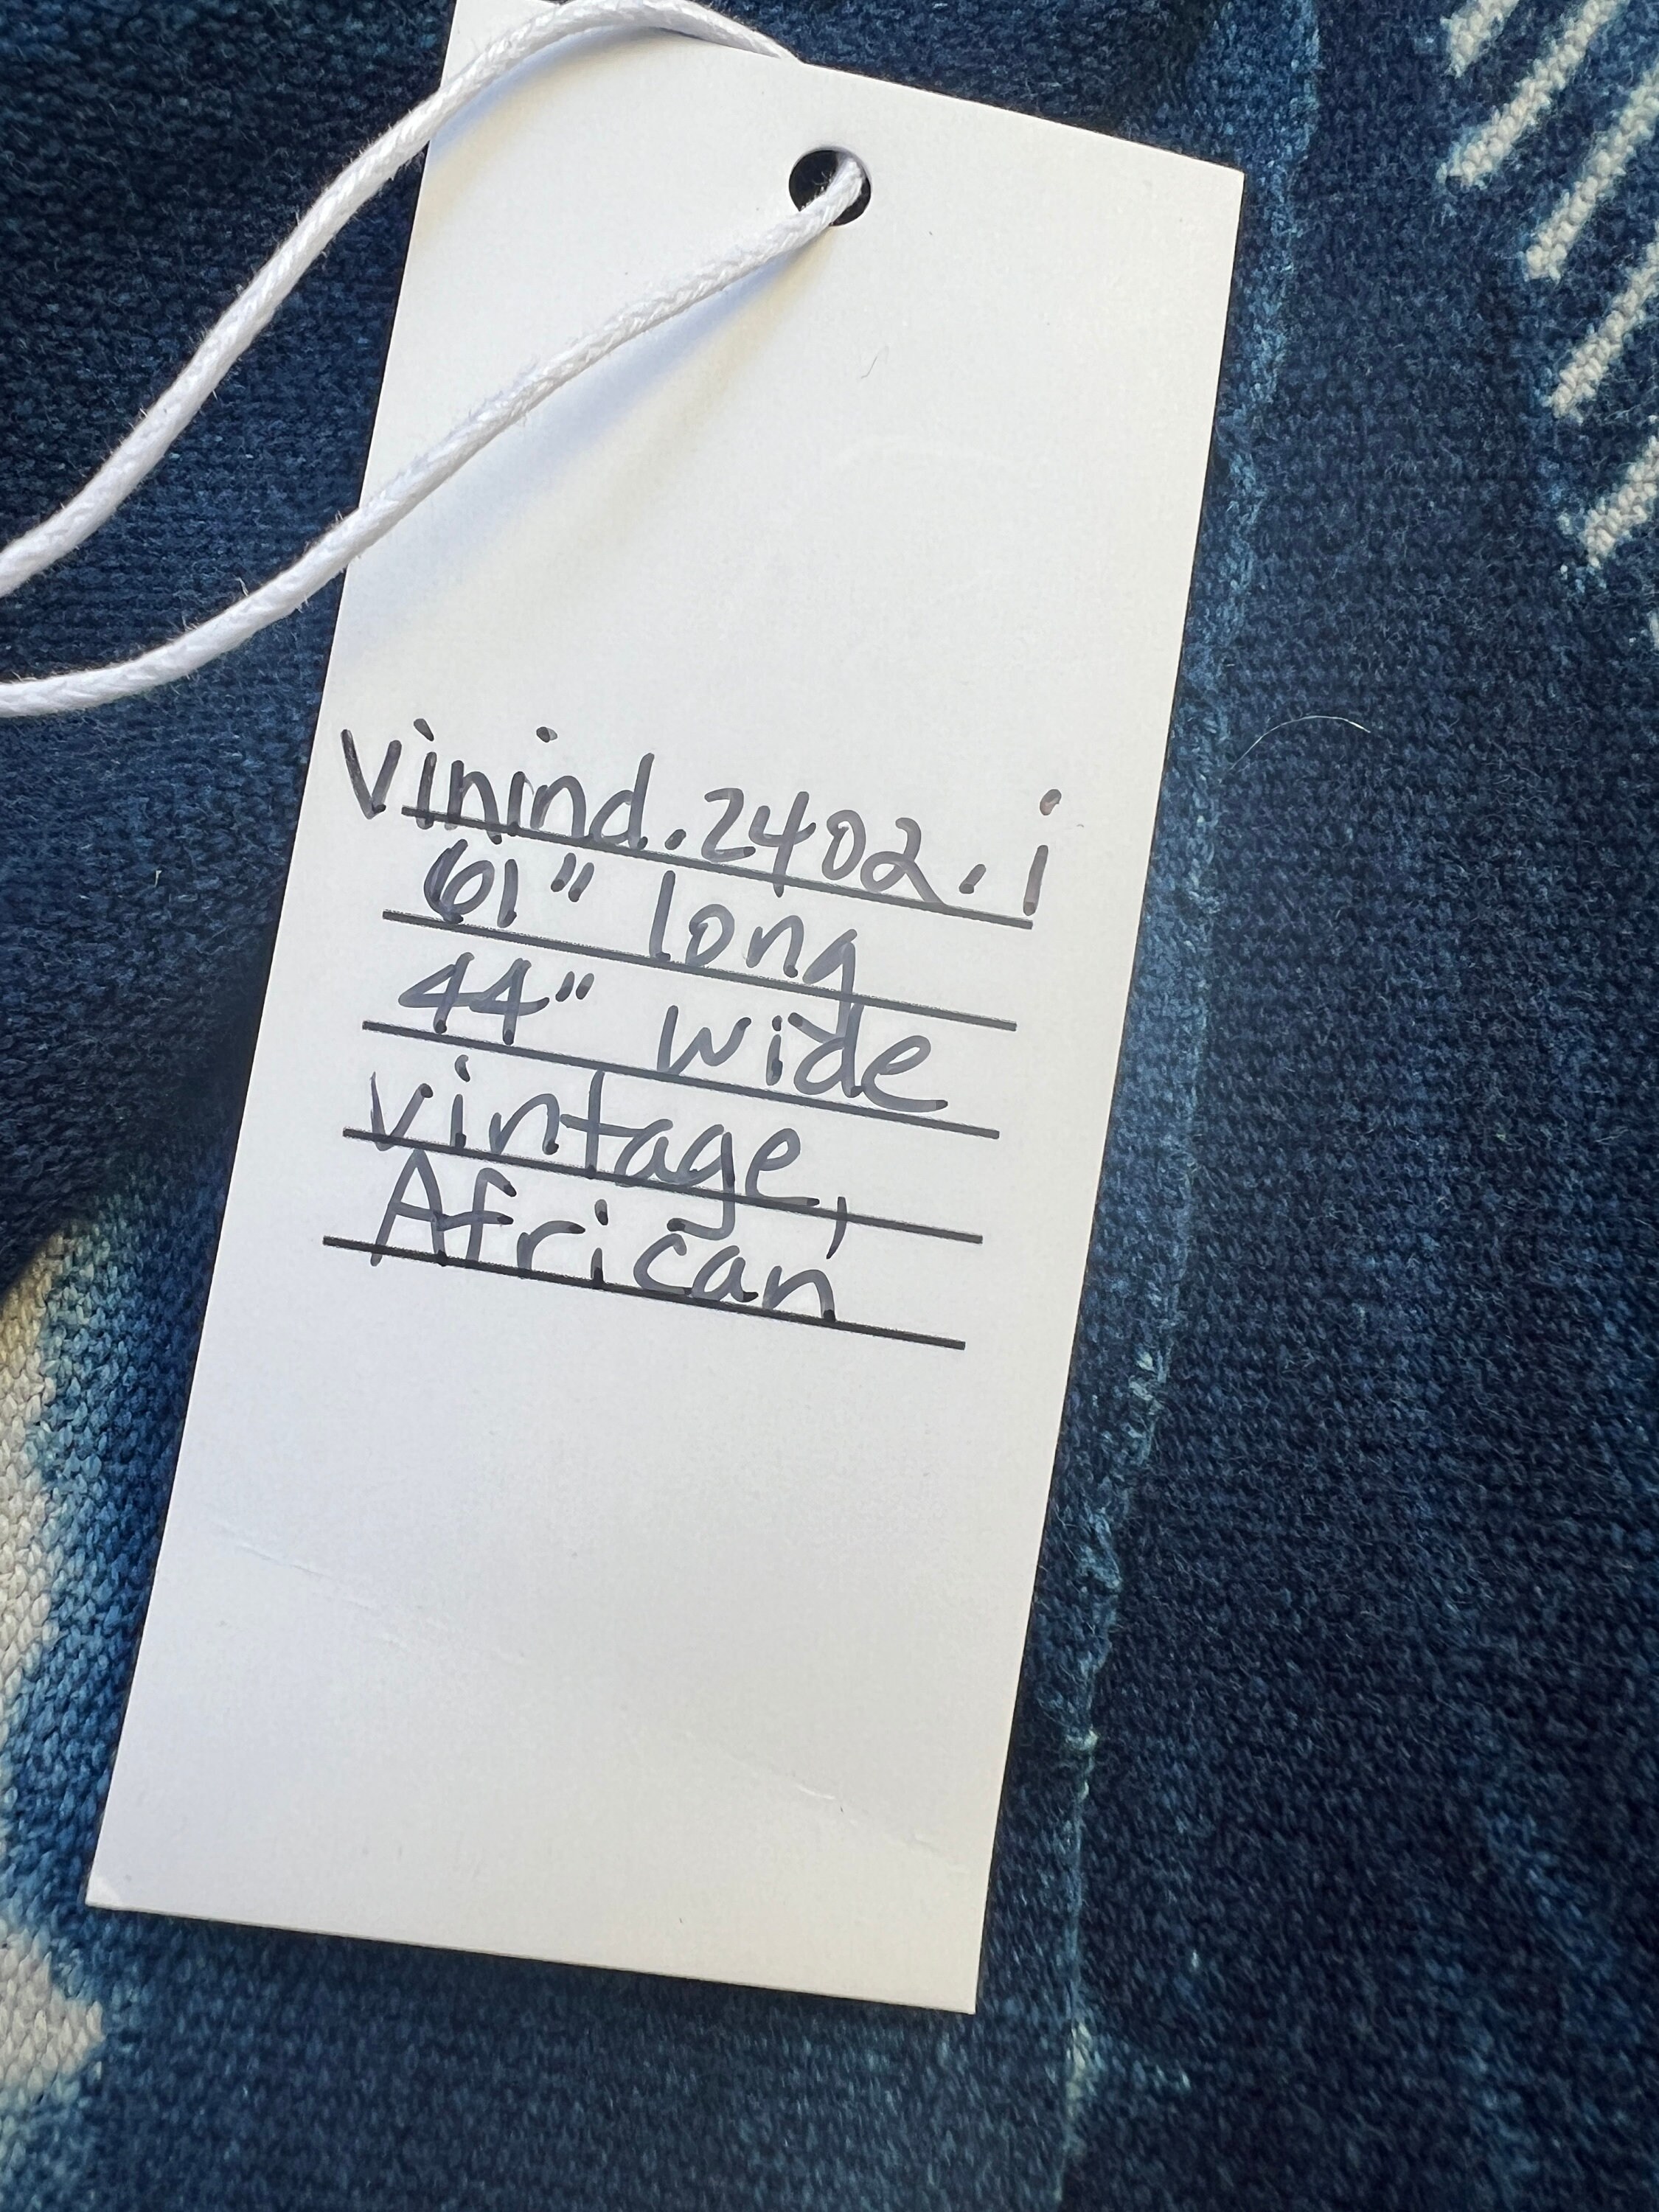 vinind.2402.i
61" long
44" wide
vintage,
African